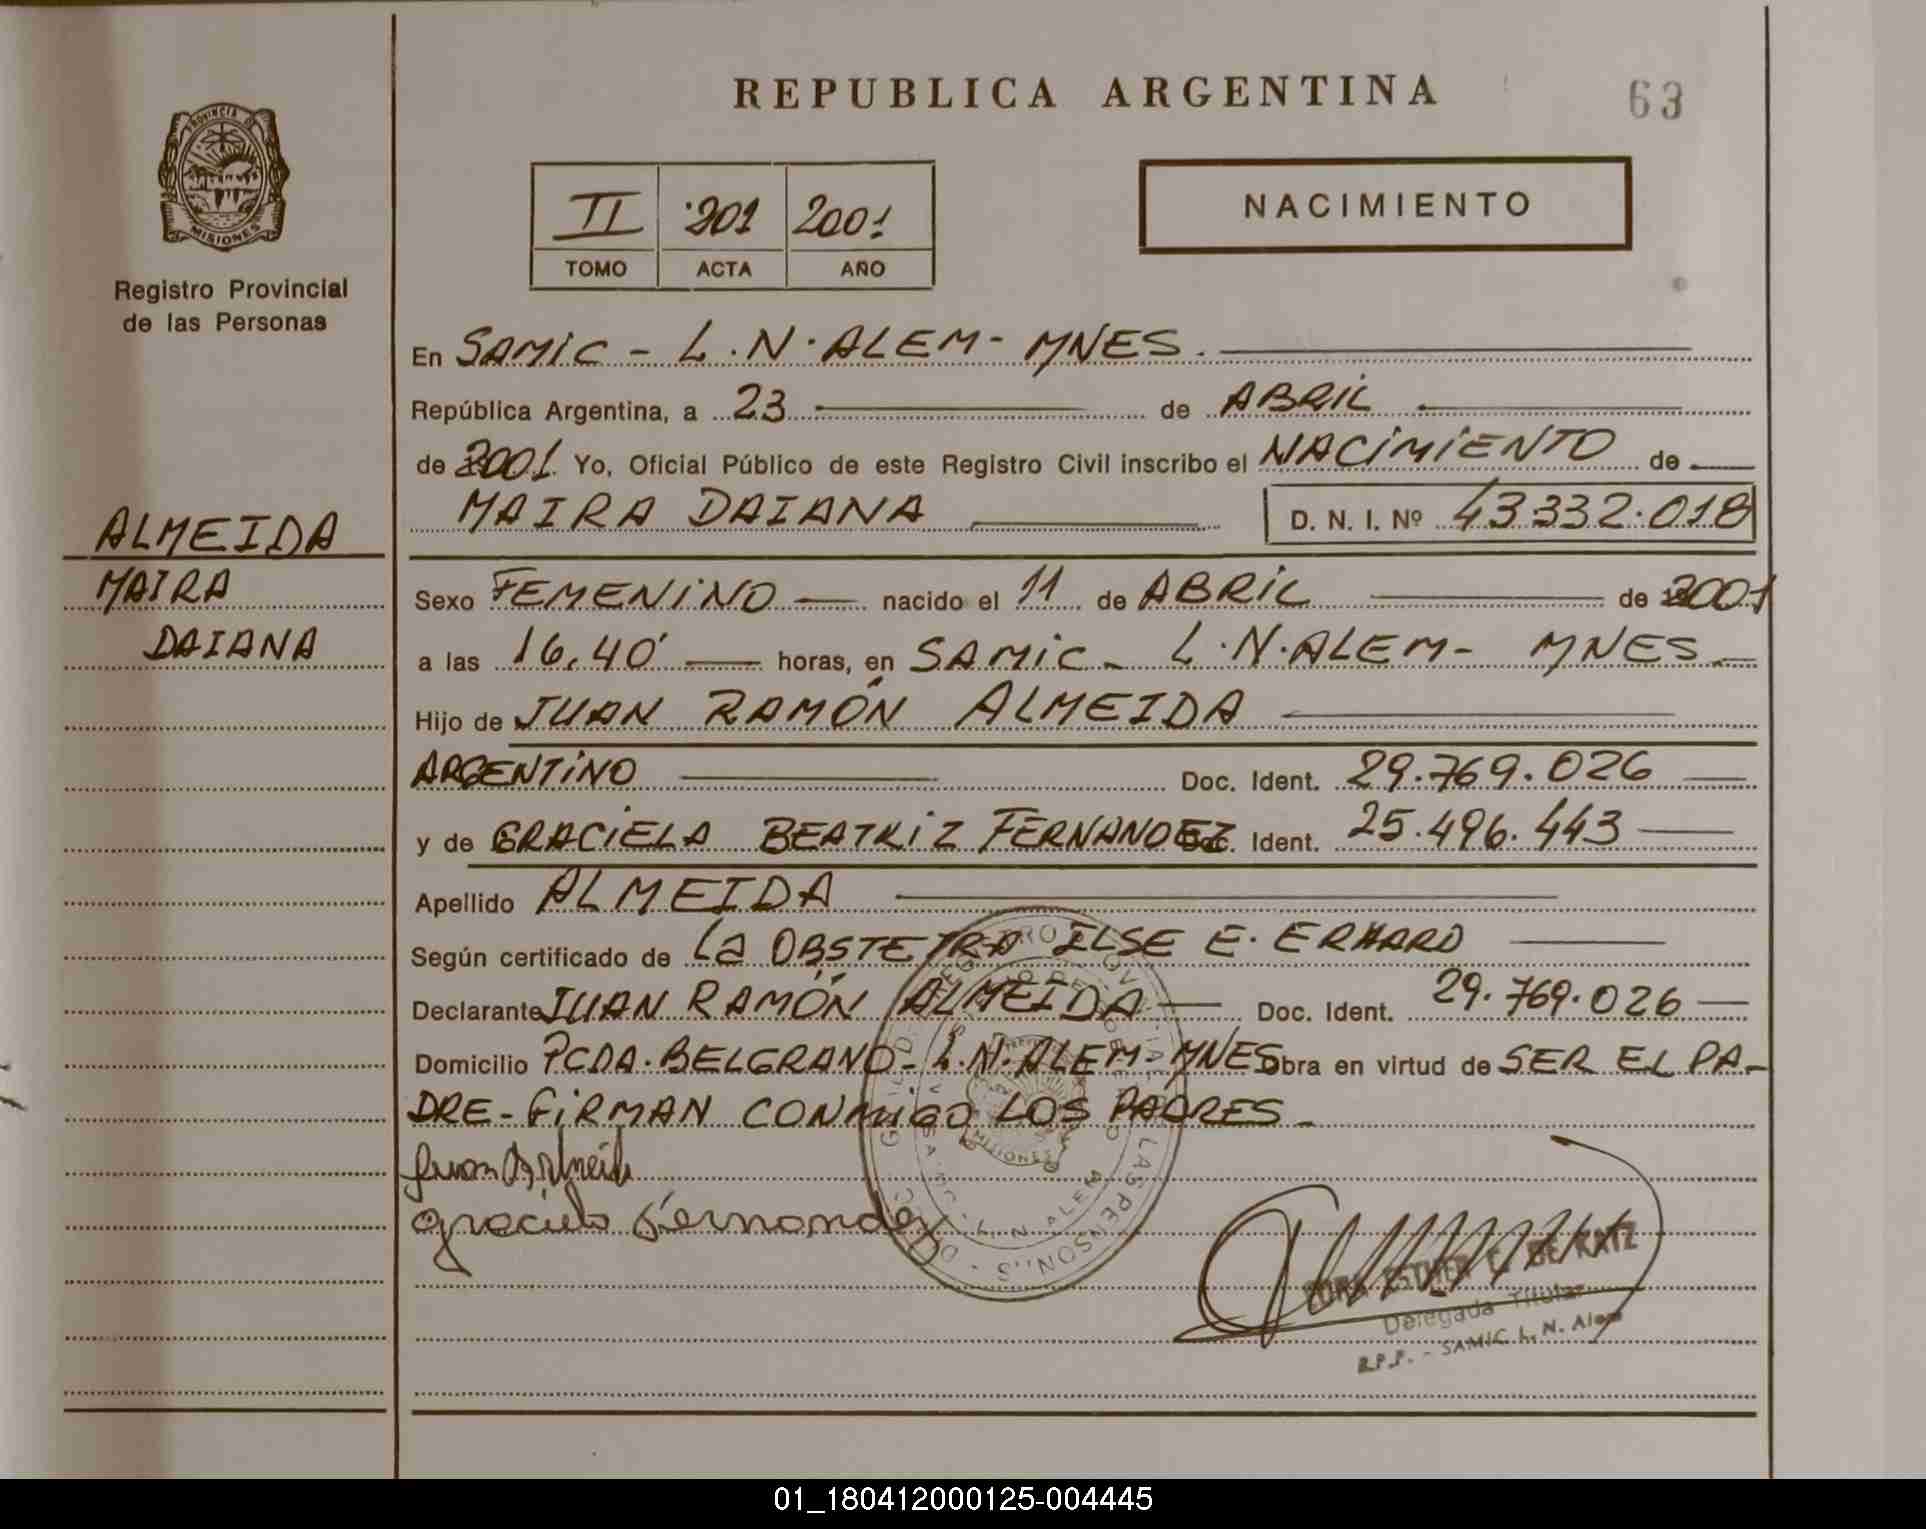 REPUBLICA ARGENTINA
63
PROVINCIA DE
MISIONES
Registro Provincial
de las Personas
II 201 2001
TOMO ACTA AÑO
NACIMIENTO
En SAMIC - L.N.ALEM - MNES.
República Argentina, a 23 de ABRIL
de 2001 Yo, Oficial Público de este Registro Civil inscribo el NACIMIENTO de
MAIRA DAIANA D. N. I. Nº 43.332.018
ALMEIDA
MAIRA
DAIANA
Sexo FEMENINO nacido el 11 de ABRIL de 2001
a las 16.40' horas, en SAMIC - L.N.ALEM - MNES.
Hijo de JUAN RAMÓN ALMEIDA
ARGENTINO Doc. Ident. 29.769.026
y de GRACIELA BEATRIZ FERNANDEZ Doc. Ident. 25.496.443
Apellido ALMEIDA
Según certificado de La OBSTETRA ILSE E. ERHARD
Declarante JUAN RAMÓN ALMEIDA Doc. Ident. 29.769.026
Domicilio PCDA. BELGRANO - L.N.ALEM - MNES Obra en virtud de SER EL PA-
DRE - FIRMAN CONMIGO LOS PADRES -
Juan Almeida
graciela Fernandez
MISIONES
L. N. ALEM
ESTHER C. DE KATZ
Delegada Titular
R.P.P. - SAMIC L. N. Alem
01_180412000125-004445